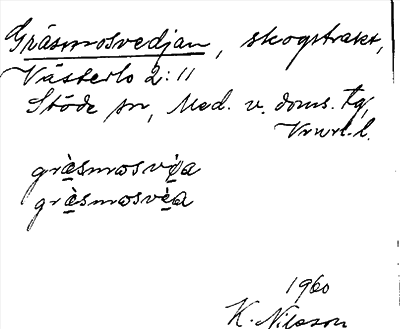 Gräsmosvedjan, skogstrakt,
Västerlo 2:11
Stöde sn, Med. v. doms. tg,
Vnrl. l.
gräsmosvẹa
gräsmosvẹa
1960
K. Nilsson